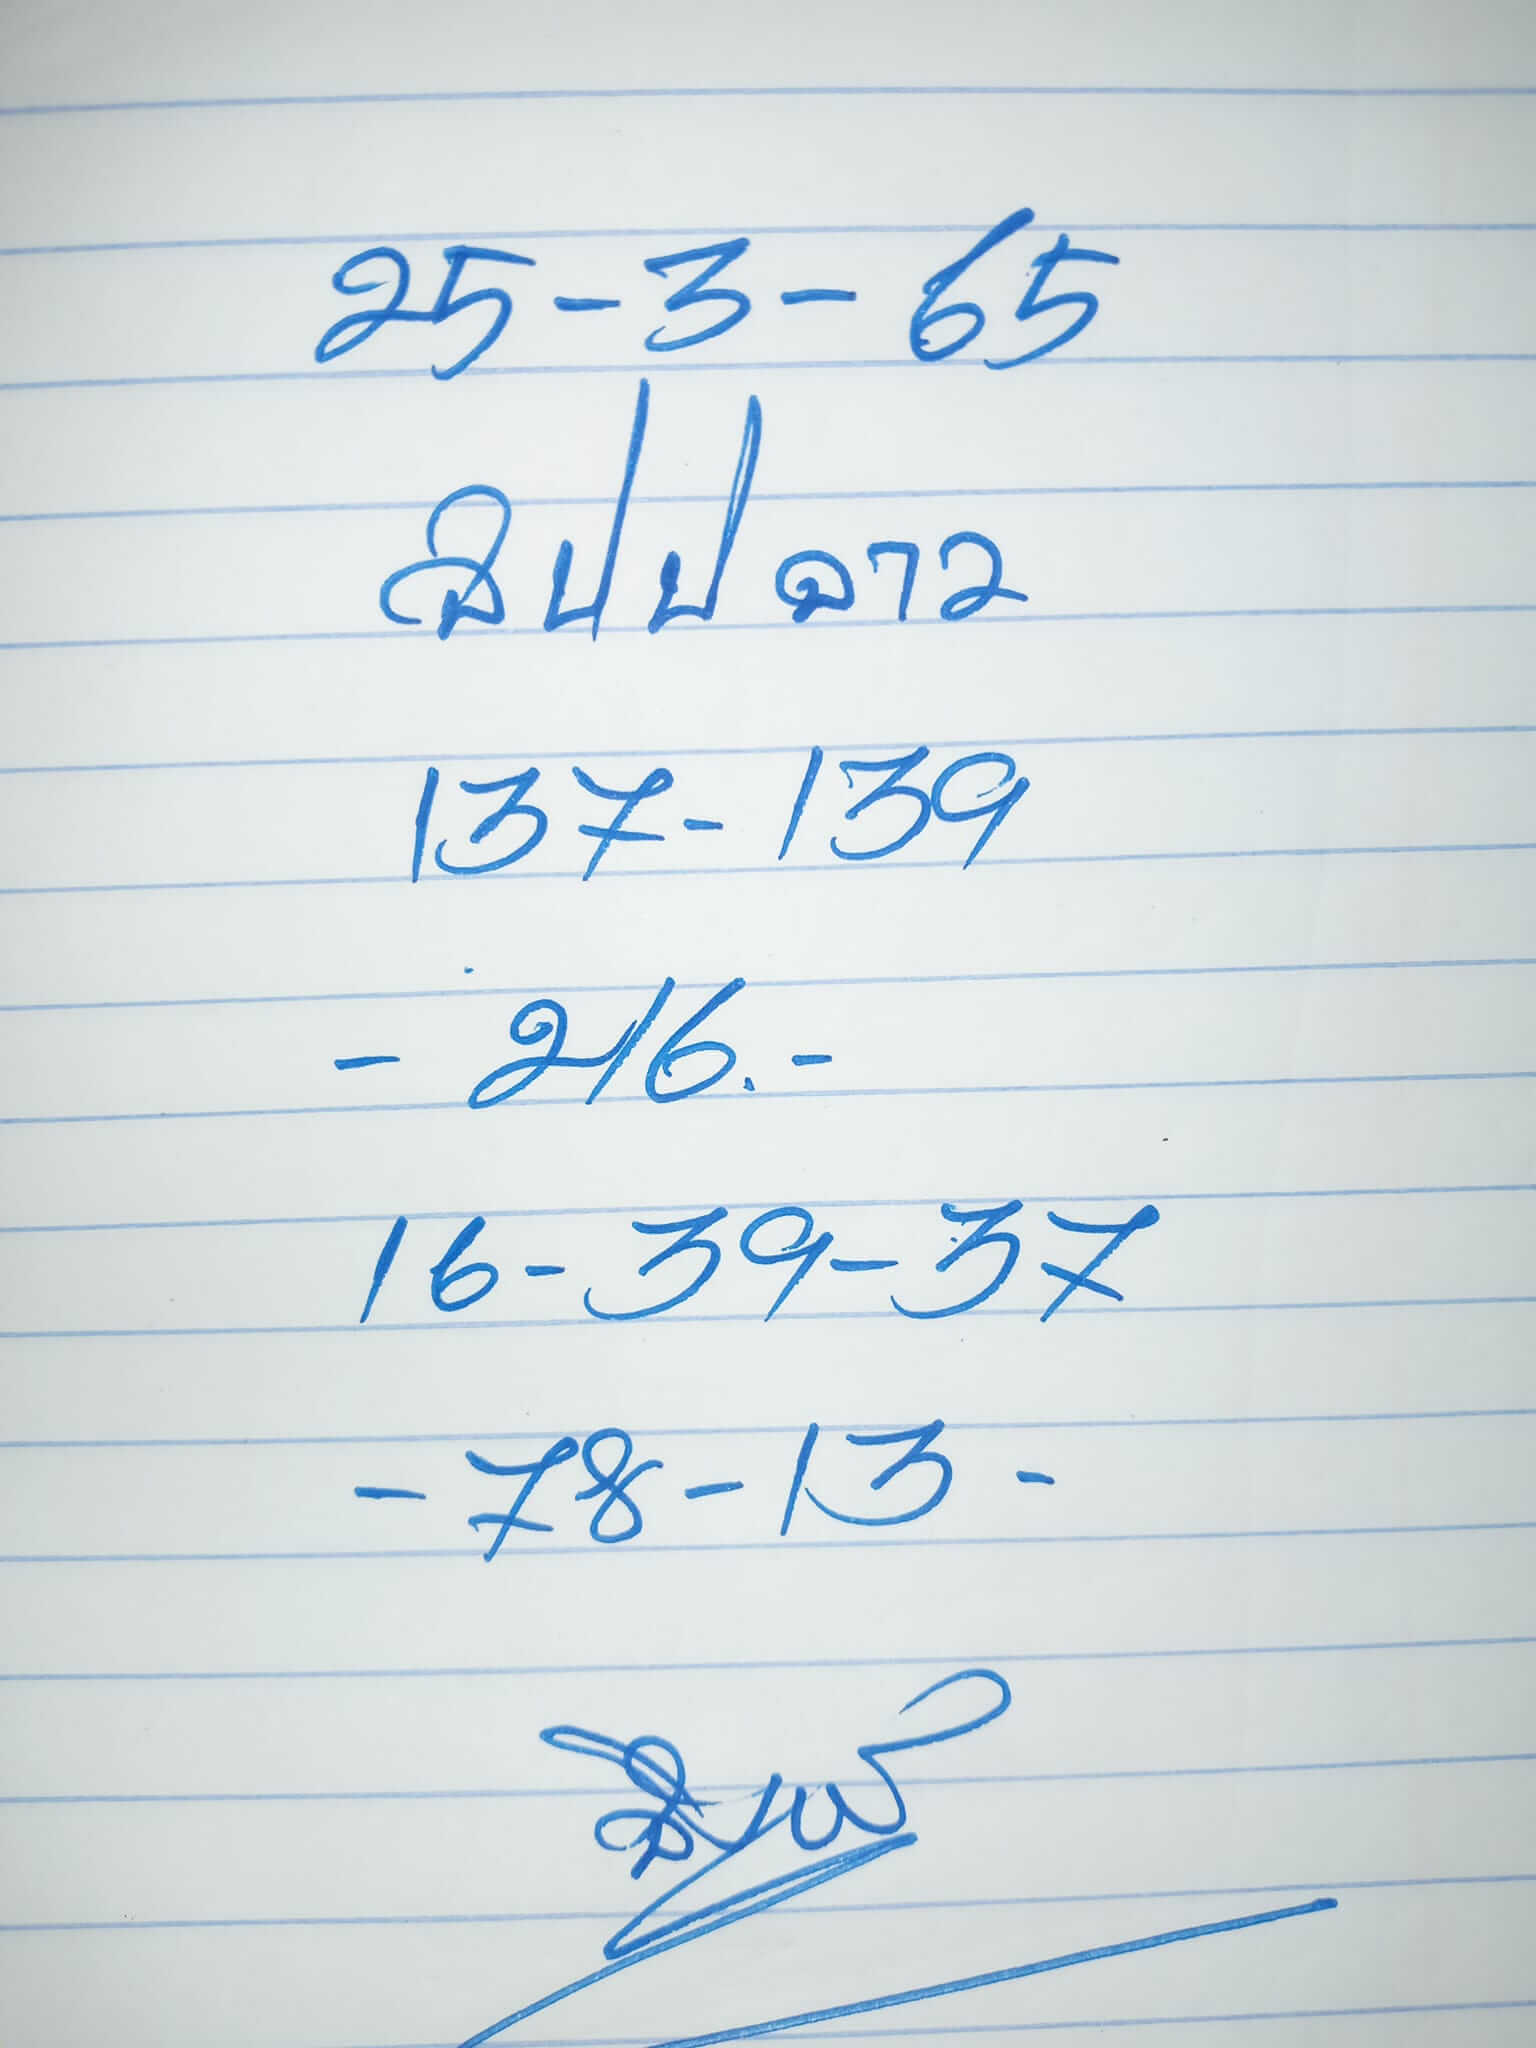 25-3-65
สปป ลาว
137-139
- 216.-
16-39-37
-78-13-